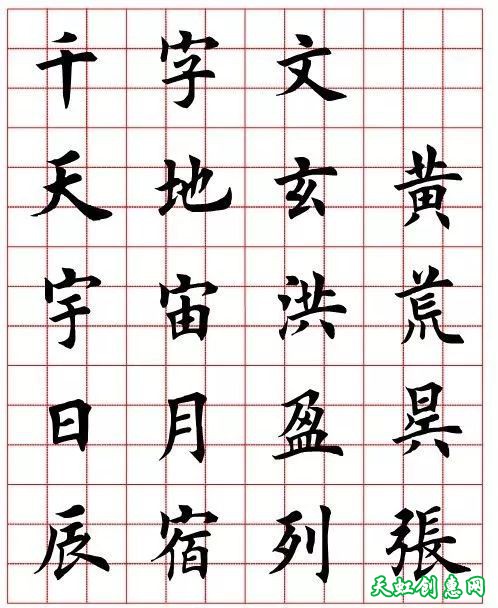 千字文
天地玄黃
宇宙洪荒
日月盈昃
辰宿列張
天虹创意网